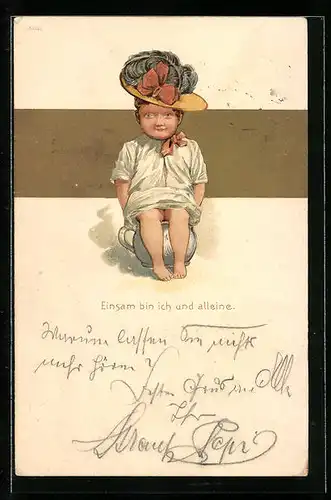 Einsam bin ich und alleine.
Warum lassen Sie nichts
mehr hören?
Gruss an Alle
Ihr
Pepi